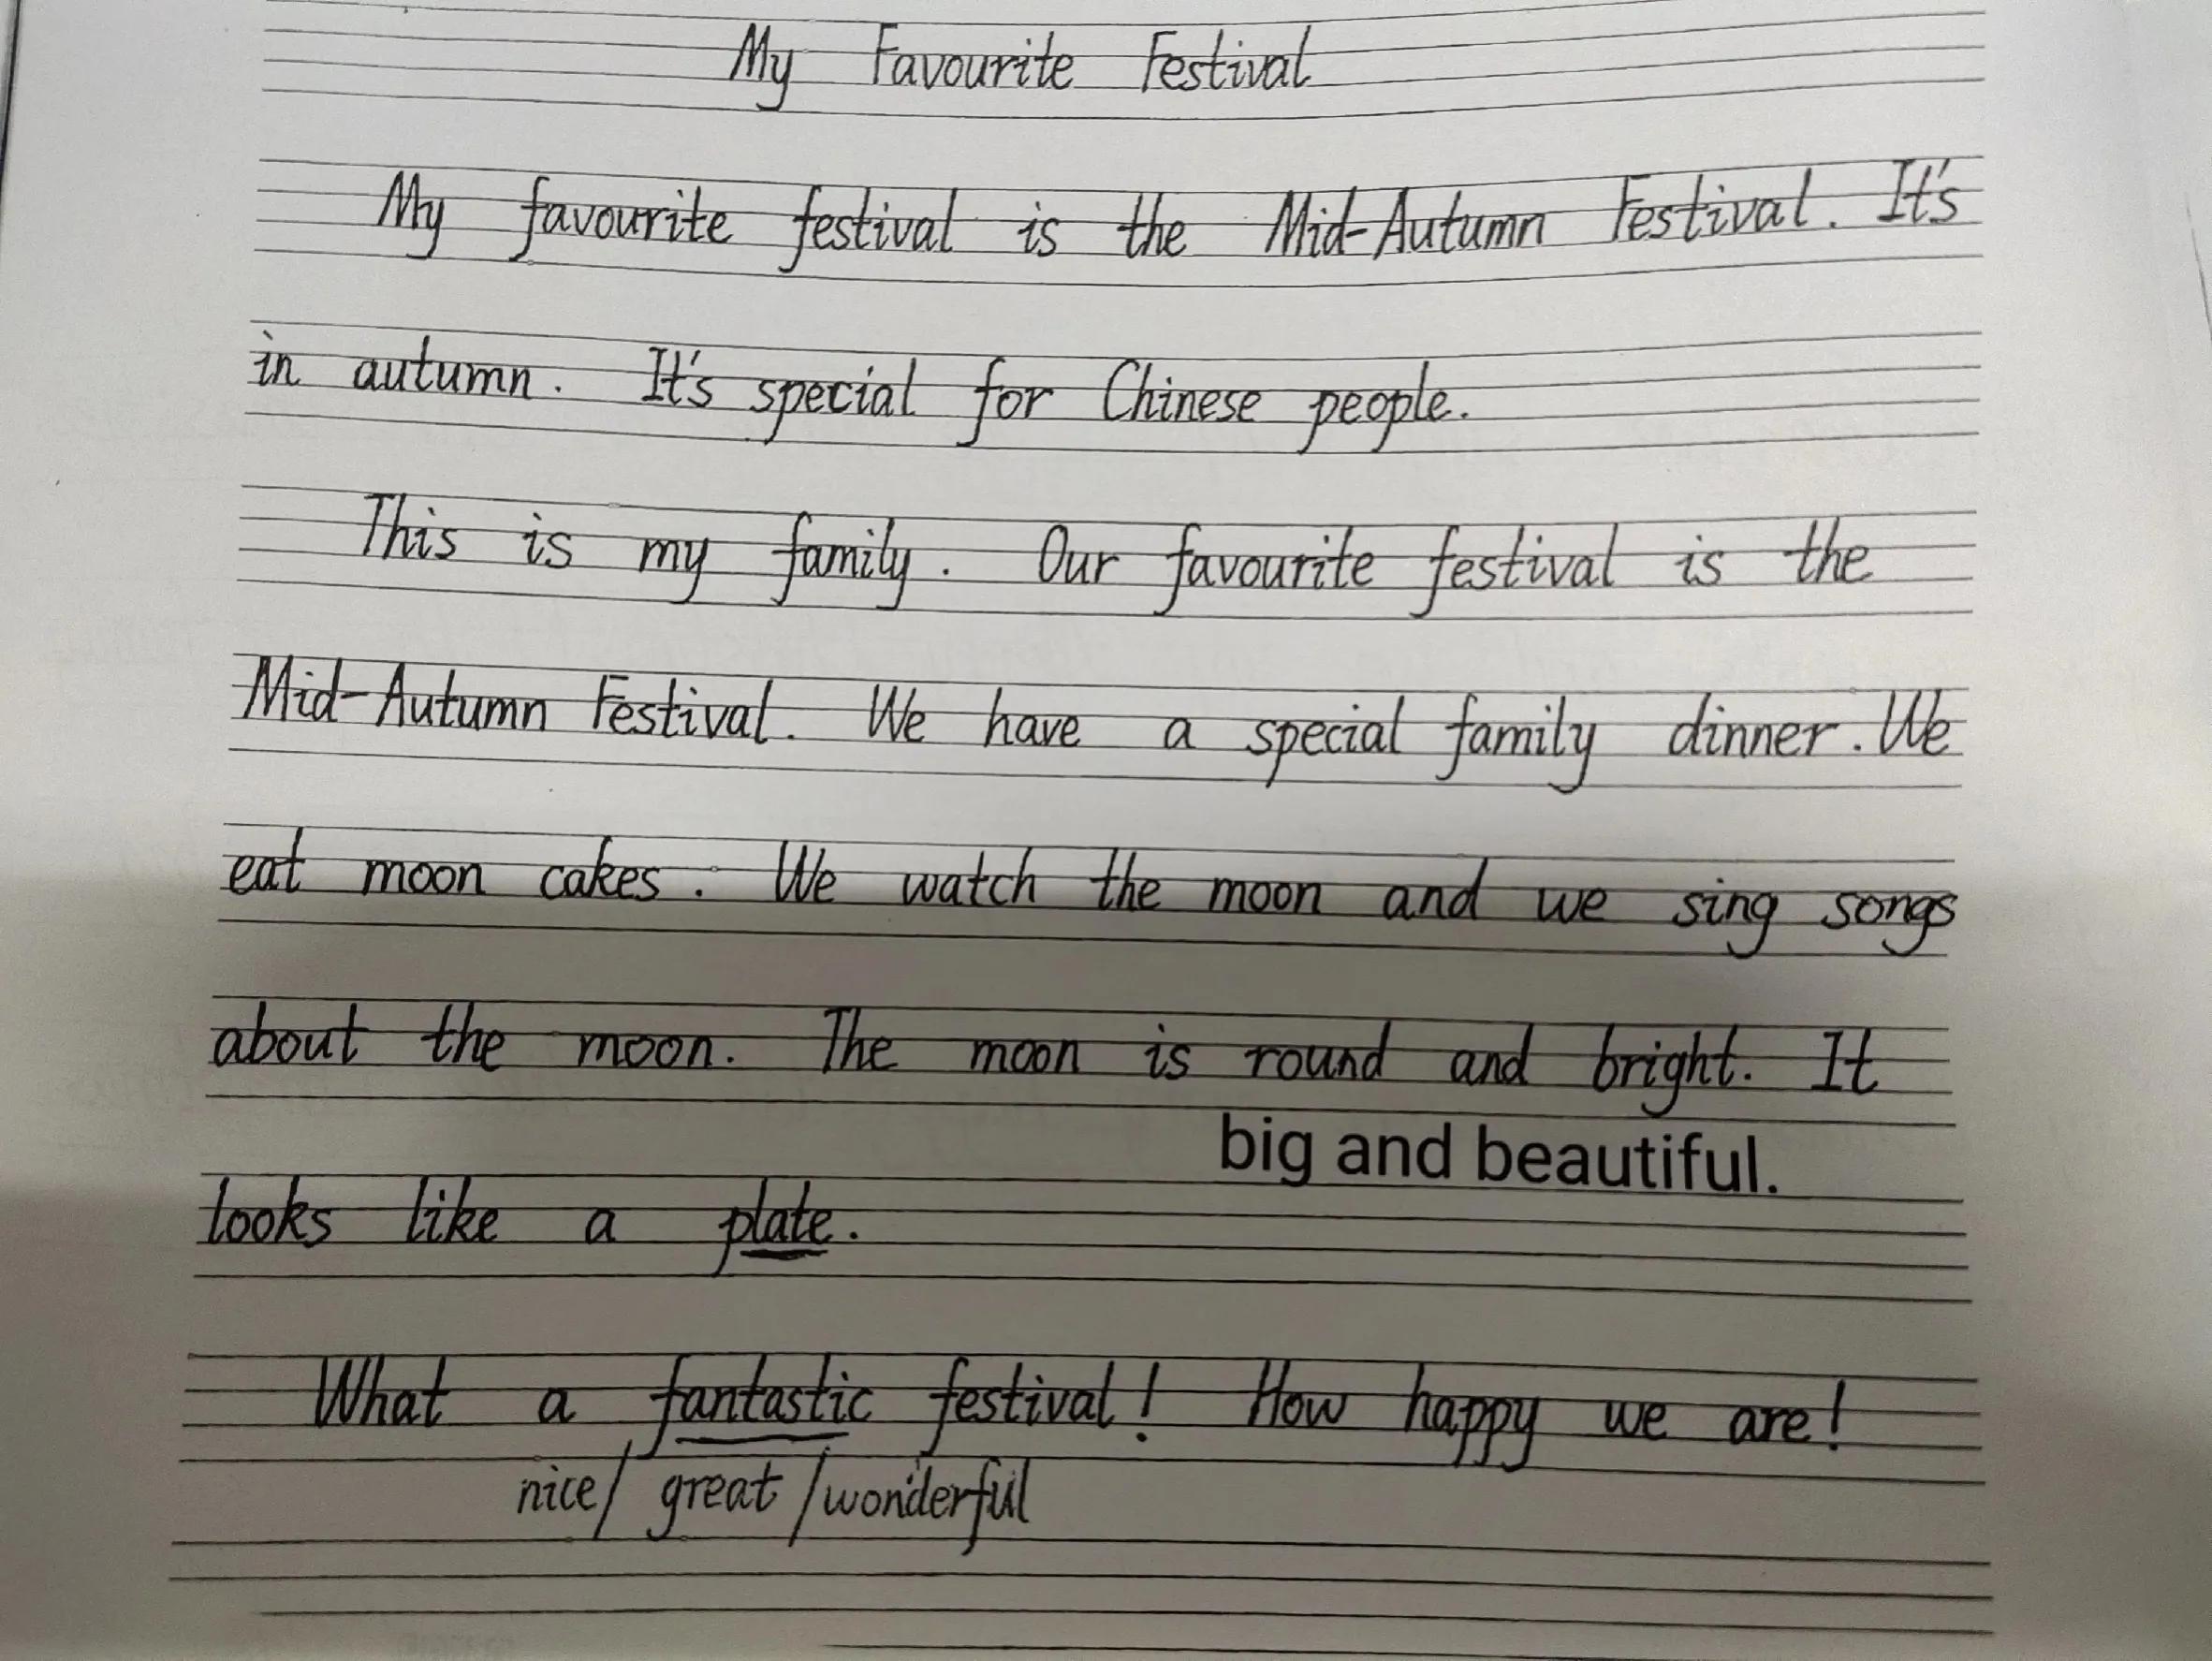 My Favourite Festival
My favourite festival is the Mid-Autumn Festival. It's
in autumn. It's special for Chinese people.
This is my family. Our favourite festival is the
Mid-Autumn Festival. We have a special family dinner. We
eat moon cakes. We watch the moon and we sing songs
about the moon. The moon is round and bright. It
big and beautiful.
looks like a plate.
What a fantastic festival! How happy we are!
nice/ great /wonderful